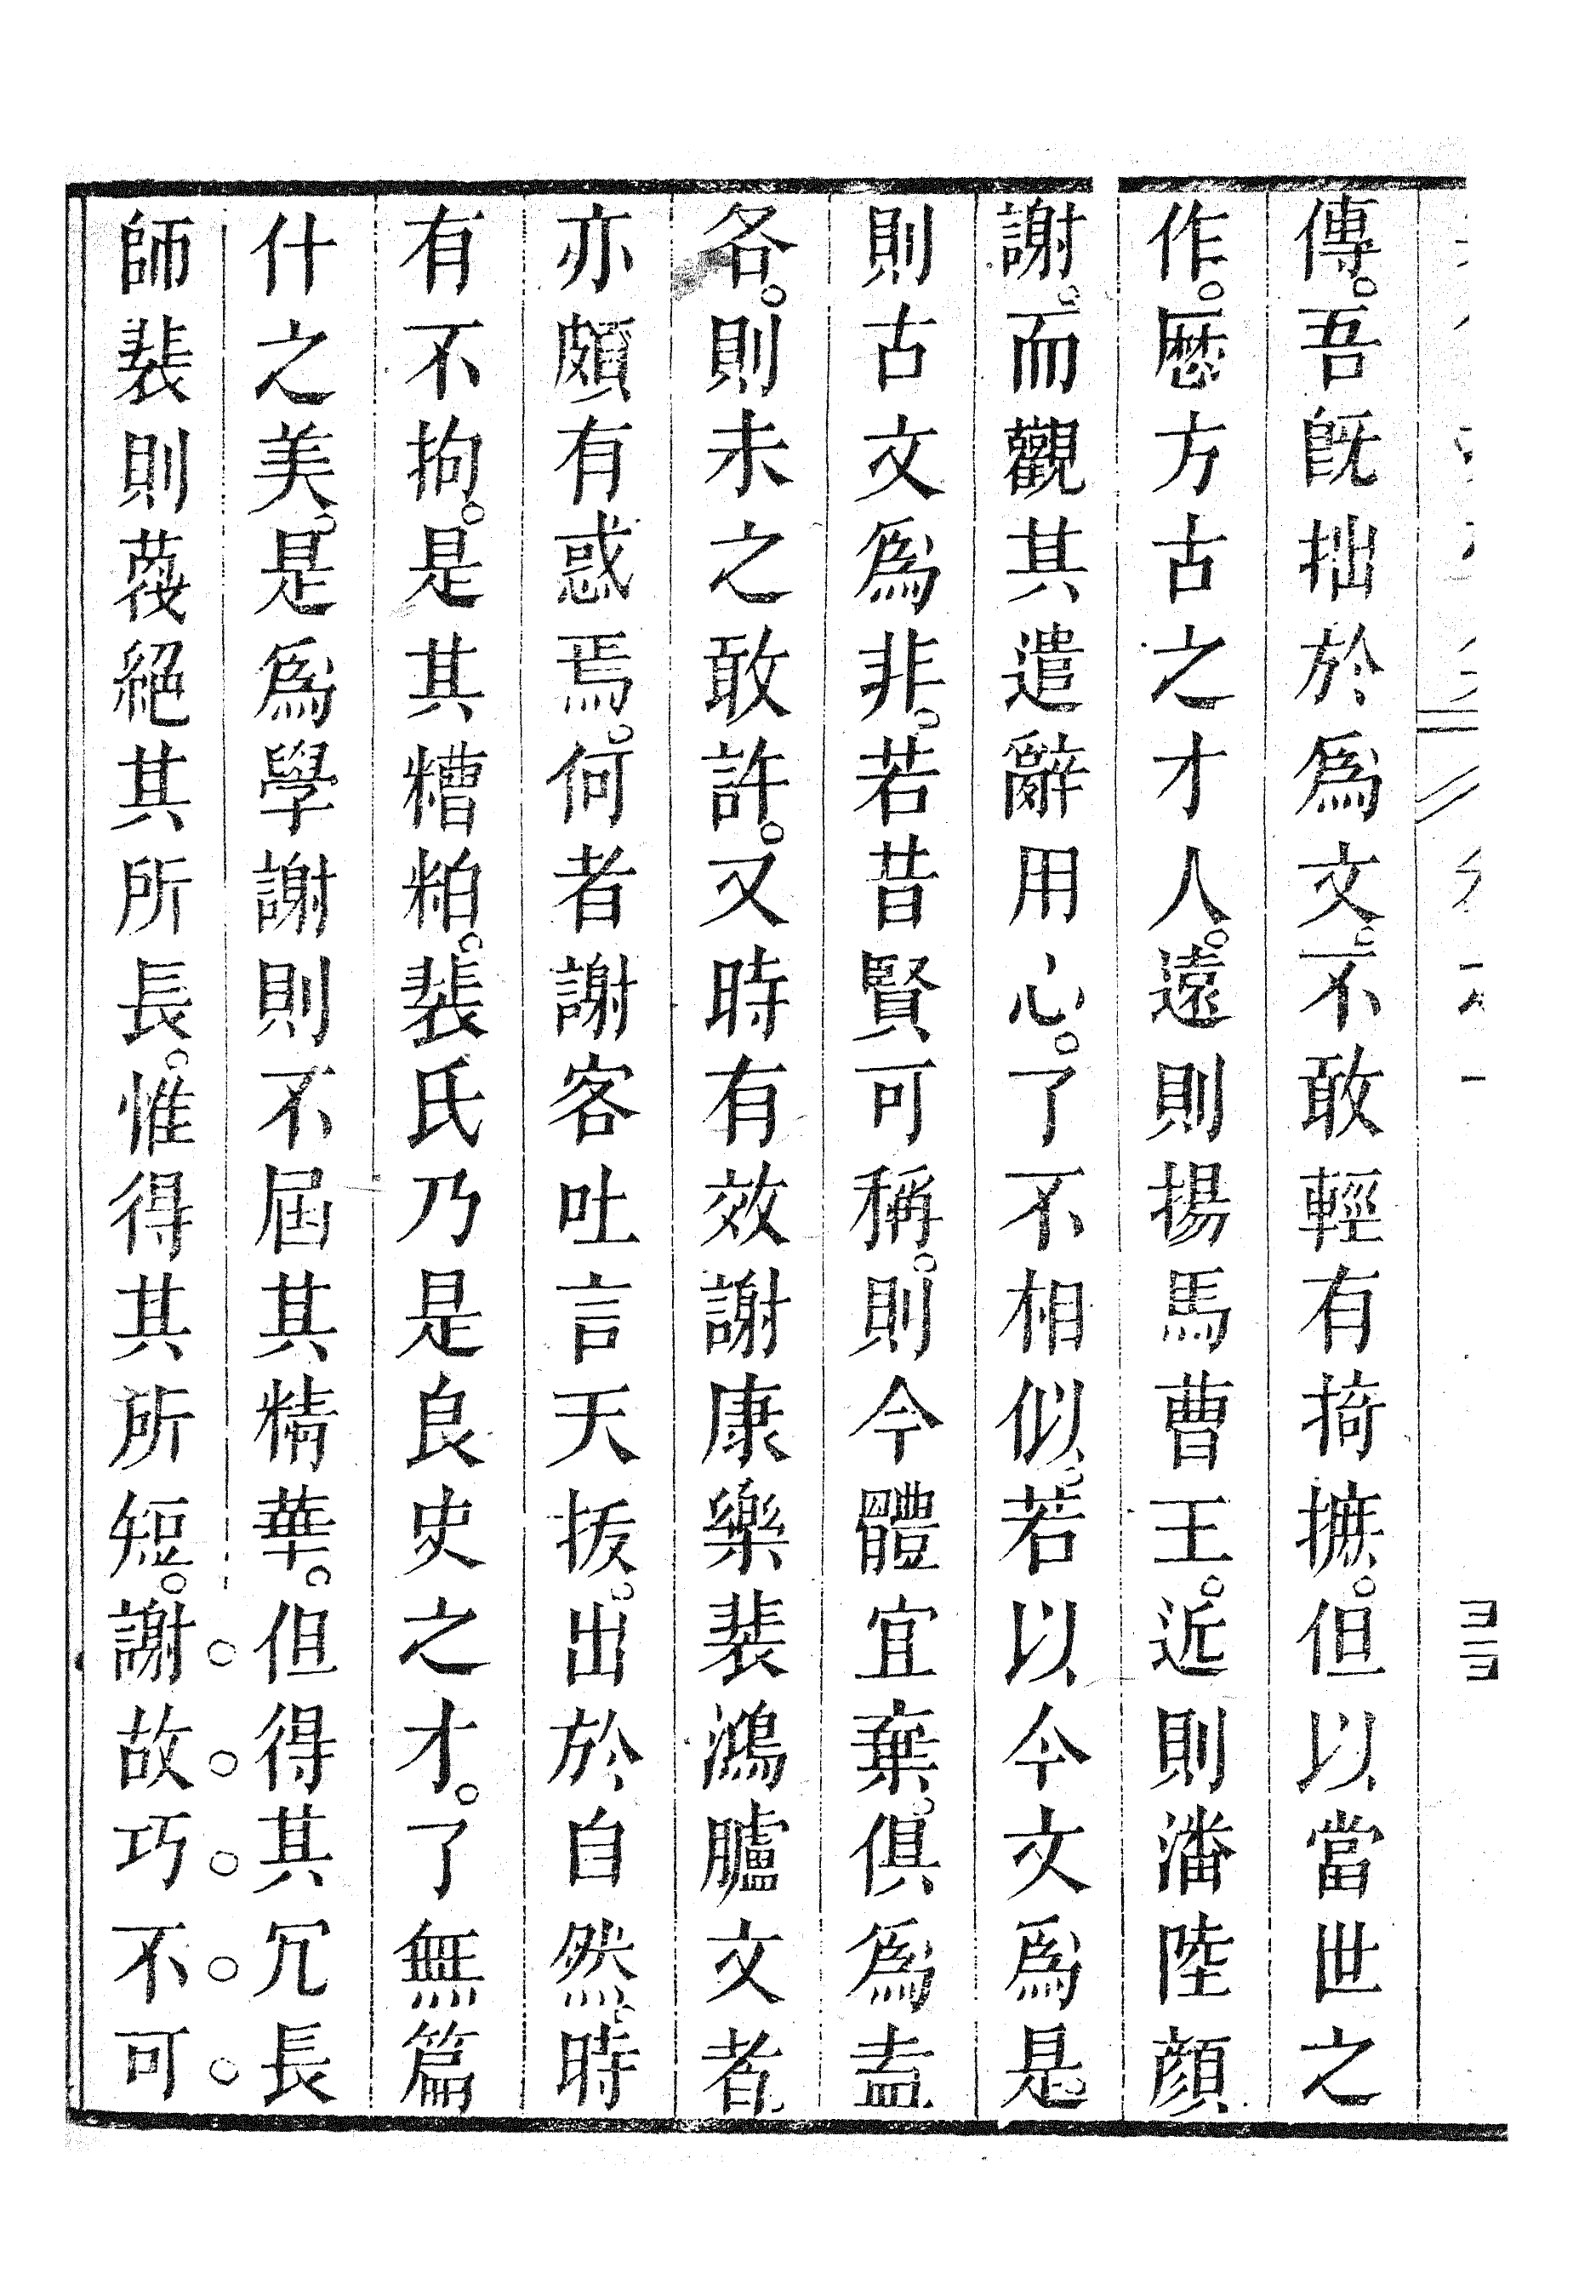 傳。吾旣拙於爲文。不敢輕有掎摭。但以當世之
作。歷方古之才人。遠則揚馬曹王。近則潘陸顏
謝。而觀其遣辭用心。了不相似。若以今文爲是。
則古文爲非。若昔賢可稱。則今體宜棄。俱爲盍
各。則未之敢許。又時有效謝康樂裴鴻臚文者。
亦頗有惑焉。何者謝客吐言天拔。出於自然。時
有不拘。是其糟粕。裴氏乃是良史之才。了無篇
什之美。是爲學謝則不屆其精華。但得其冗長
師裴則蔑絕其所長。惟得其所短。謝故巧不可